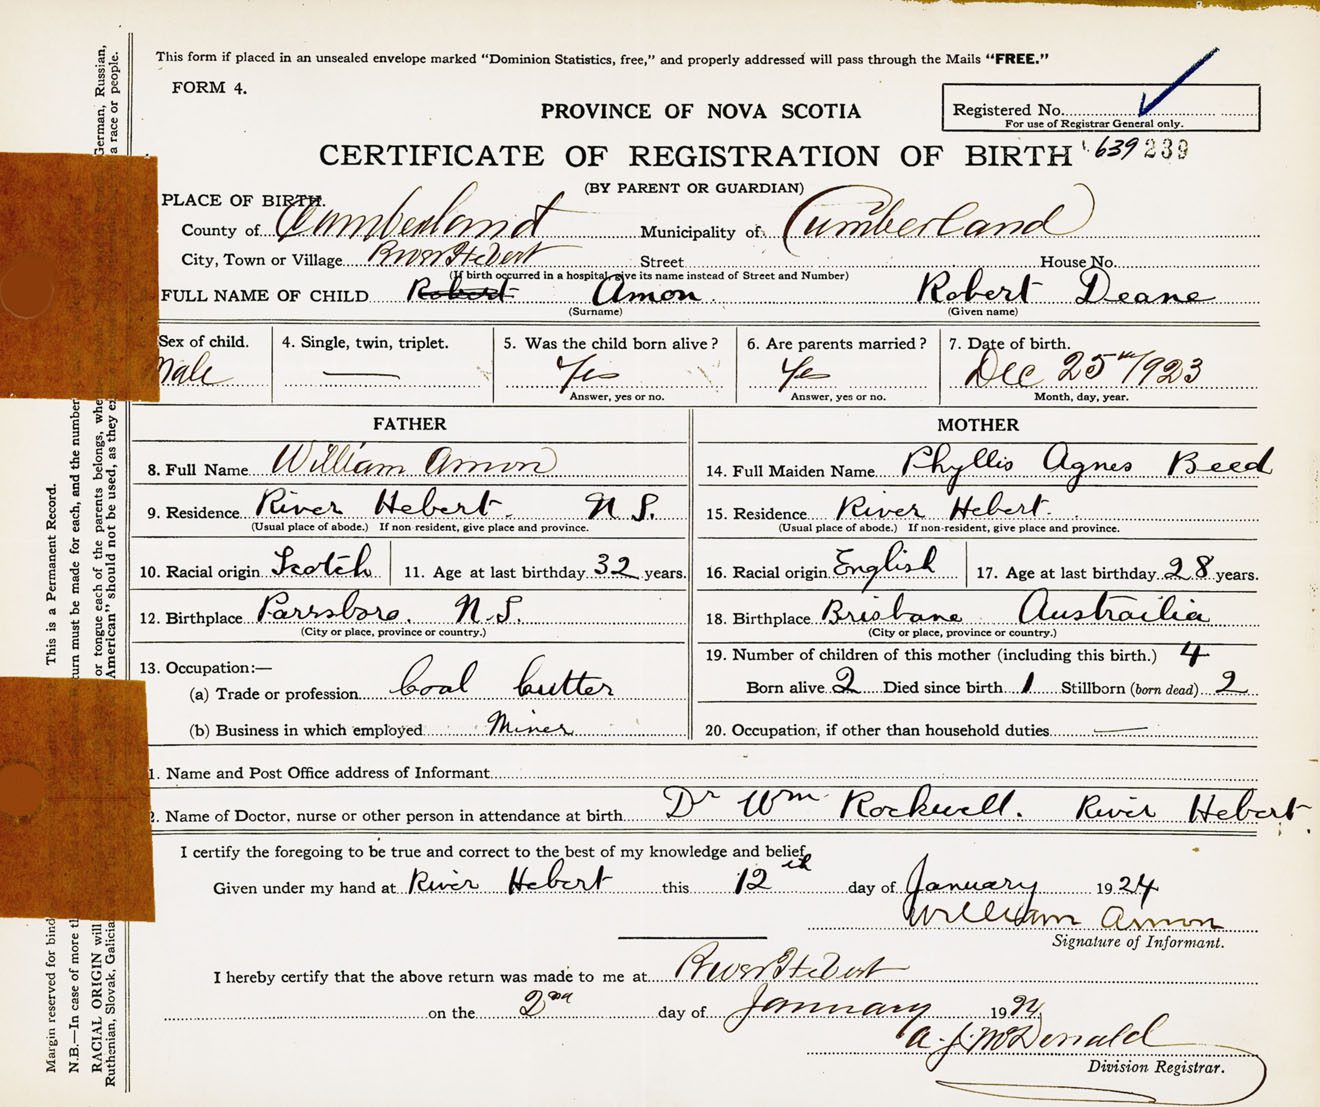 This form if placed in an unsealed envelope marked "Dominion Statistics, free," and properly addressed will pass through the Mails "FREE."
FORM 4.
PROVINCE OF NOVA SCOTIA
Registered No.
For use of Registrar General only.
CERTIFICATE OF REGISTRATION OF BIRTH
639 239
(BY PARENT OR GUARDIAN)
PLACE OF BIRTH.
County of Cumberland Municipality of Cumberland
City, Town or Village River Hebert Street House No.
(If birth occurred in a hospital, give its name instead of Street and Number)
FULL NAME OF CHILD Robert Amon Robert Deane
(Surname) (Given name)
Sex of child. 4. Single, twin, triplet. 5. Was the child born alive? 6. Are parents married? 7. Date of birth.
Male — Yes Yes Dec 25th/1923
Answer, yes or no. Answer, yes or no. Month, day, year.
FATHER MOTHER
8. Full Name William Amon 14. Full Maiden Name Phyllis Agnes Beed
9. Residence River Hebert. N.S. 15. Residence River Hebert.
(Usual place of abode.) If non-resident, give place and province. (Usual place of abode.) If non-resident, give place and province.
10. Racial origin Scotch 11. Age at last birthday 32 years. 16. Racial origin English 17. Age at last birthday 28 years.
12. Birthplace Parrsboro. N.S. 18. Birthplace Brisbane Austrailia
(City or place, province or country.) (City or place, province or country.)
13. Occupation:— 19. Number of children of this mother (including this birth.) 4
(a) Trade or profession Coal Cutter Born alive 2 Died since birth 1 Stillborn (born dead) 2
(b) Business in which employed Miner 20. Occupation, if other than household duties —
1. Name and Post Office address of Informant
2. Name of Doctor, nurse or other person in attendance at birth Dr Wm Rockwell. River Hebert.
I certify the foregoing to be true and correct to the best of my knowledge and belief,
Given under my hand at River Hebert this 12th day of January 1924
William Amon
Signature of Informant.
I hereby certify that the above return was made to me at River Hebert
on the 2nd day of January 1924
A. J. McDonald
Division Registrar.
Margin reserved for bind
This is a Permanent Record.
N.B.—In case of more th
turn must be made for each, and the number
RACIAL ORIGIN will
or tongue each of the parents belongs, whe
German, Russian,
Ruthenian, Slovak, Galicia
American" should not be used, as they ex
a race or people.